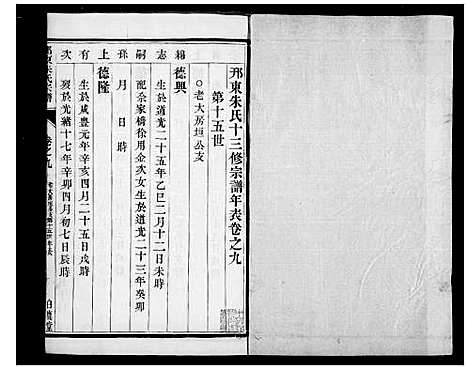 邗東朱氏十三修宗譜年表卷之九
第十五世
○老大房垣公支
錫 德興
志 生於道光二十五年乙巳二月十二日未時
嗣 配佘家橋徐用金次女生於道光二十三年癸卯
孫 月 日 時
上 德隆
有 生於咸豐元年辛亥四月二十五日戌時
次 歿於光緒十七年辛卯四月初七日辰時
卷之九